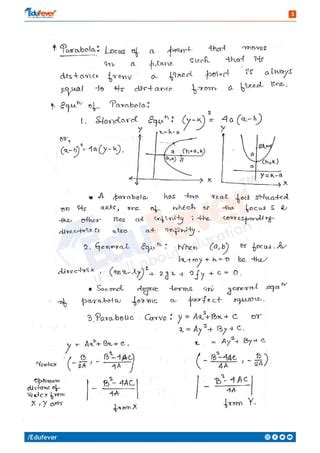 Edufever
3
* Parabola: Locus of a point that moves
in a plane such that its
distance from a fixed point is always
equal to its distance from a fixed line.
* Equn of Parabola:
1. Standard Equn: (y-k)² = 4a(x-h)
or,
(x-h)² = 4a(y-k).
Y
x=h-a
a (h+a,k)
(h,k)
X
Y
a
(h,k)
y=k-a
X
• A parabola has two real foci situated
on its axis, one of which is the focus S &
the other lies at infinity; the corresponding
directrix is also at infinity.
2. General Equn: When (a,b) is focus &
lx+my+n=0 be the
directrix, (mx-ly)² + 2gx + 2fy + c = 0.
• Second degree terms in general equn
of parabola forms a perfect square.
3. Parabolic Curve: y = Ax²+Bx+C or
x = Ay²+By+C.
y = Ax²+Bx+C. x = Ay²+By+C
Vertex (-B/2A, -B²-4AC/4A) (-B²-4AC/4A, -B/2A)
distance of
Vertex from
X, Y axis
|-B²-4AC/4A| from X |-B²-4AC/4A| from Y.
/Edufever